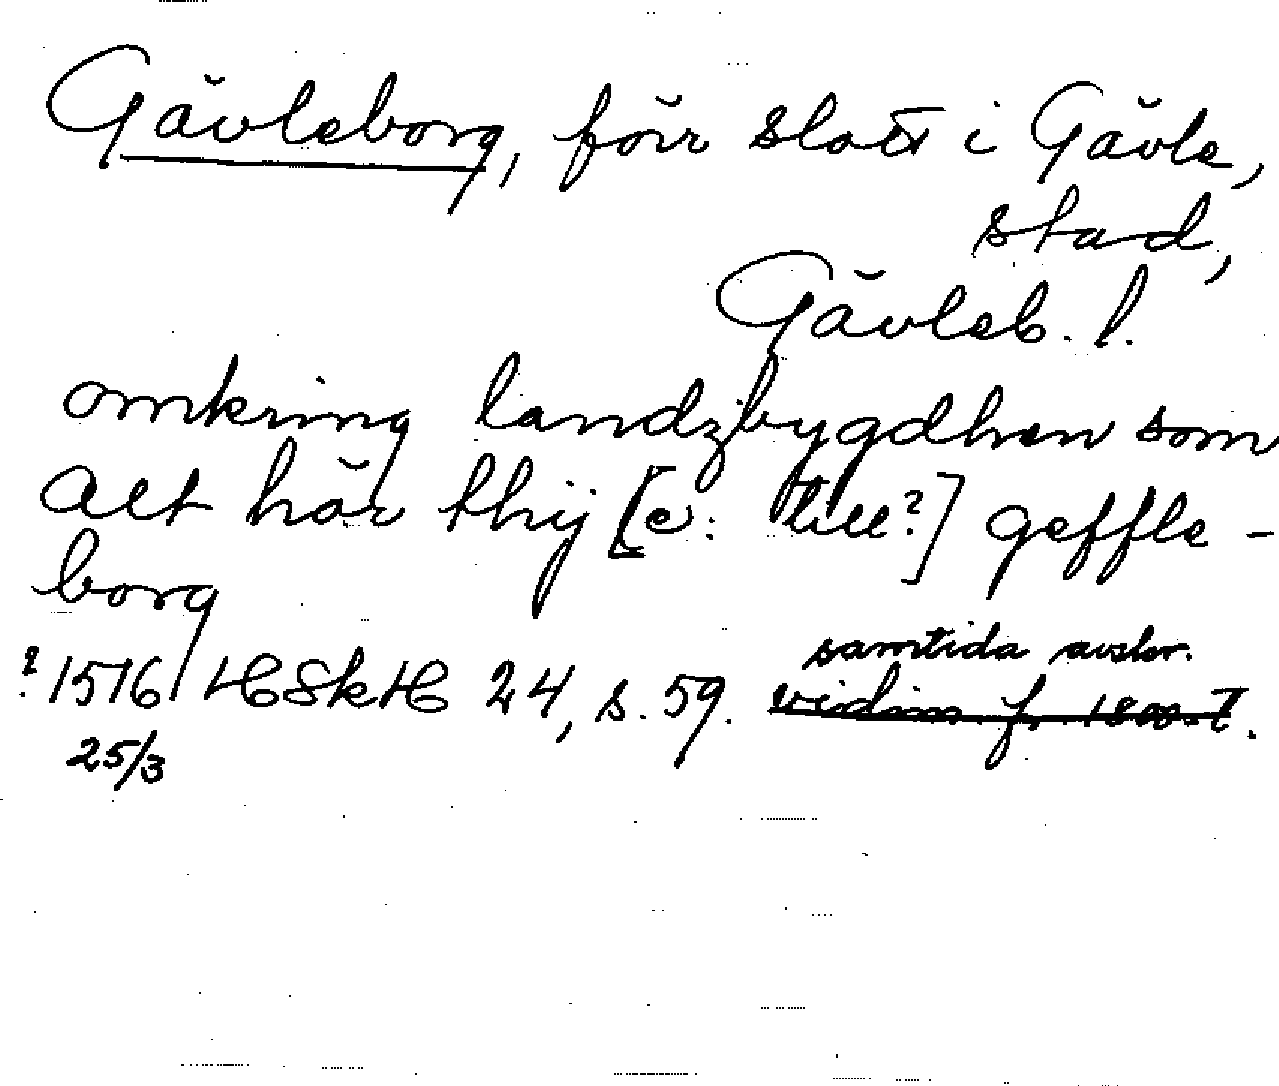 Gävleborg, förr slott i Gävle,
stad,
Gävleb. l.
omkring landzbygdhen som
alt hör thij [c: till?] geffle-
borg
samtida avskr.
?1516 HSkH 24, s. 59. vidim. fr. 1800-t.
25/3